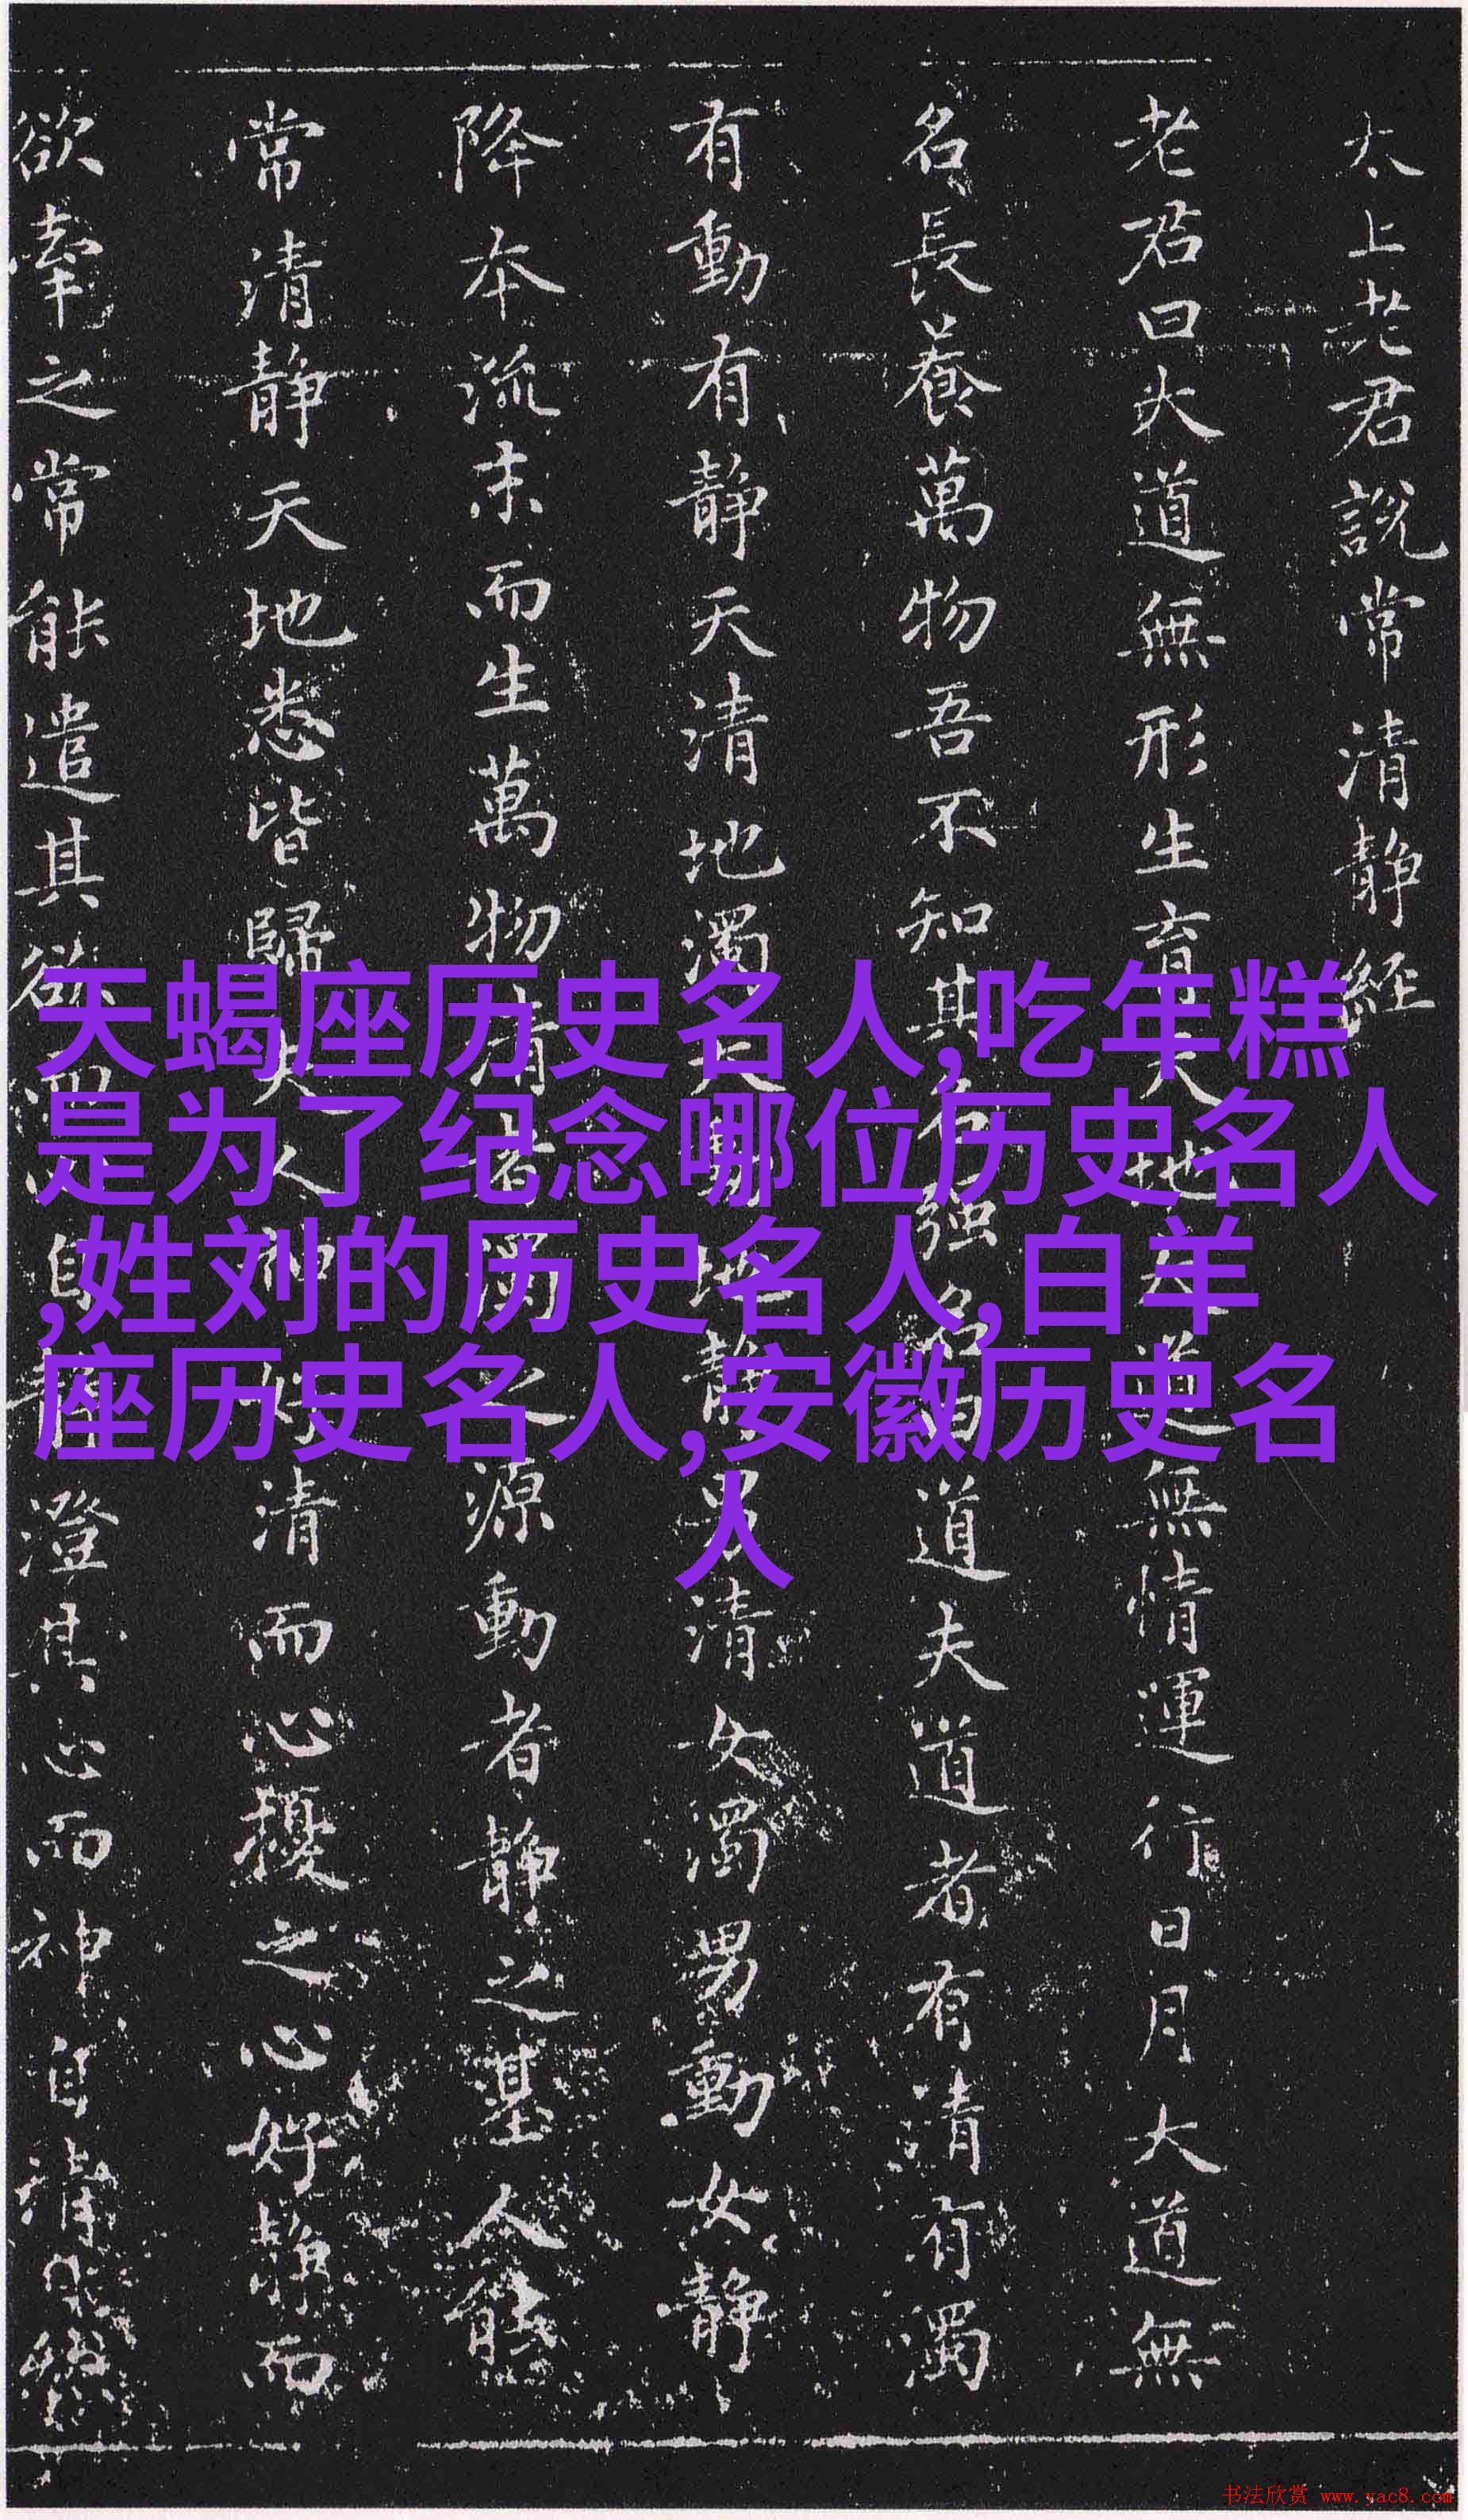 太上老君說常清静經
老君曰大道無形生育天地大道無情運行日月大道無
名長養萬物吾不知其名强名曰道夫道者有清有濁
有動有静天清地濁天動地静男清女濁男動女静
降本流末而生萬物清者濁之源動者静之基人能
常清静天地悉皆歸夫人神好清而心擾之心好静而
欲牽之常能遣其欲而心自静澄其心而神自清
天蝎座历史名人,吃年糕
是为了纪念哪位历史名人
,姓刘的历史名人,白羊
座历史名人,安徽历史名
人
书法欣赏 www.yac8.com